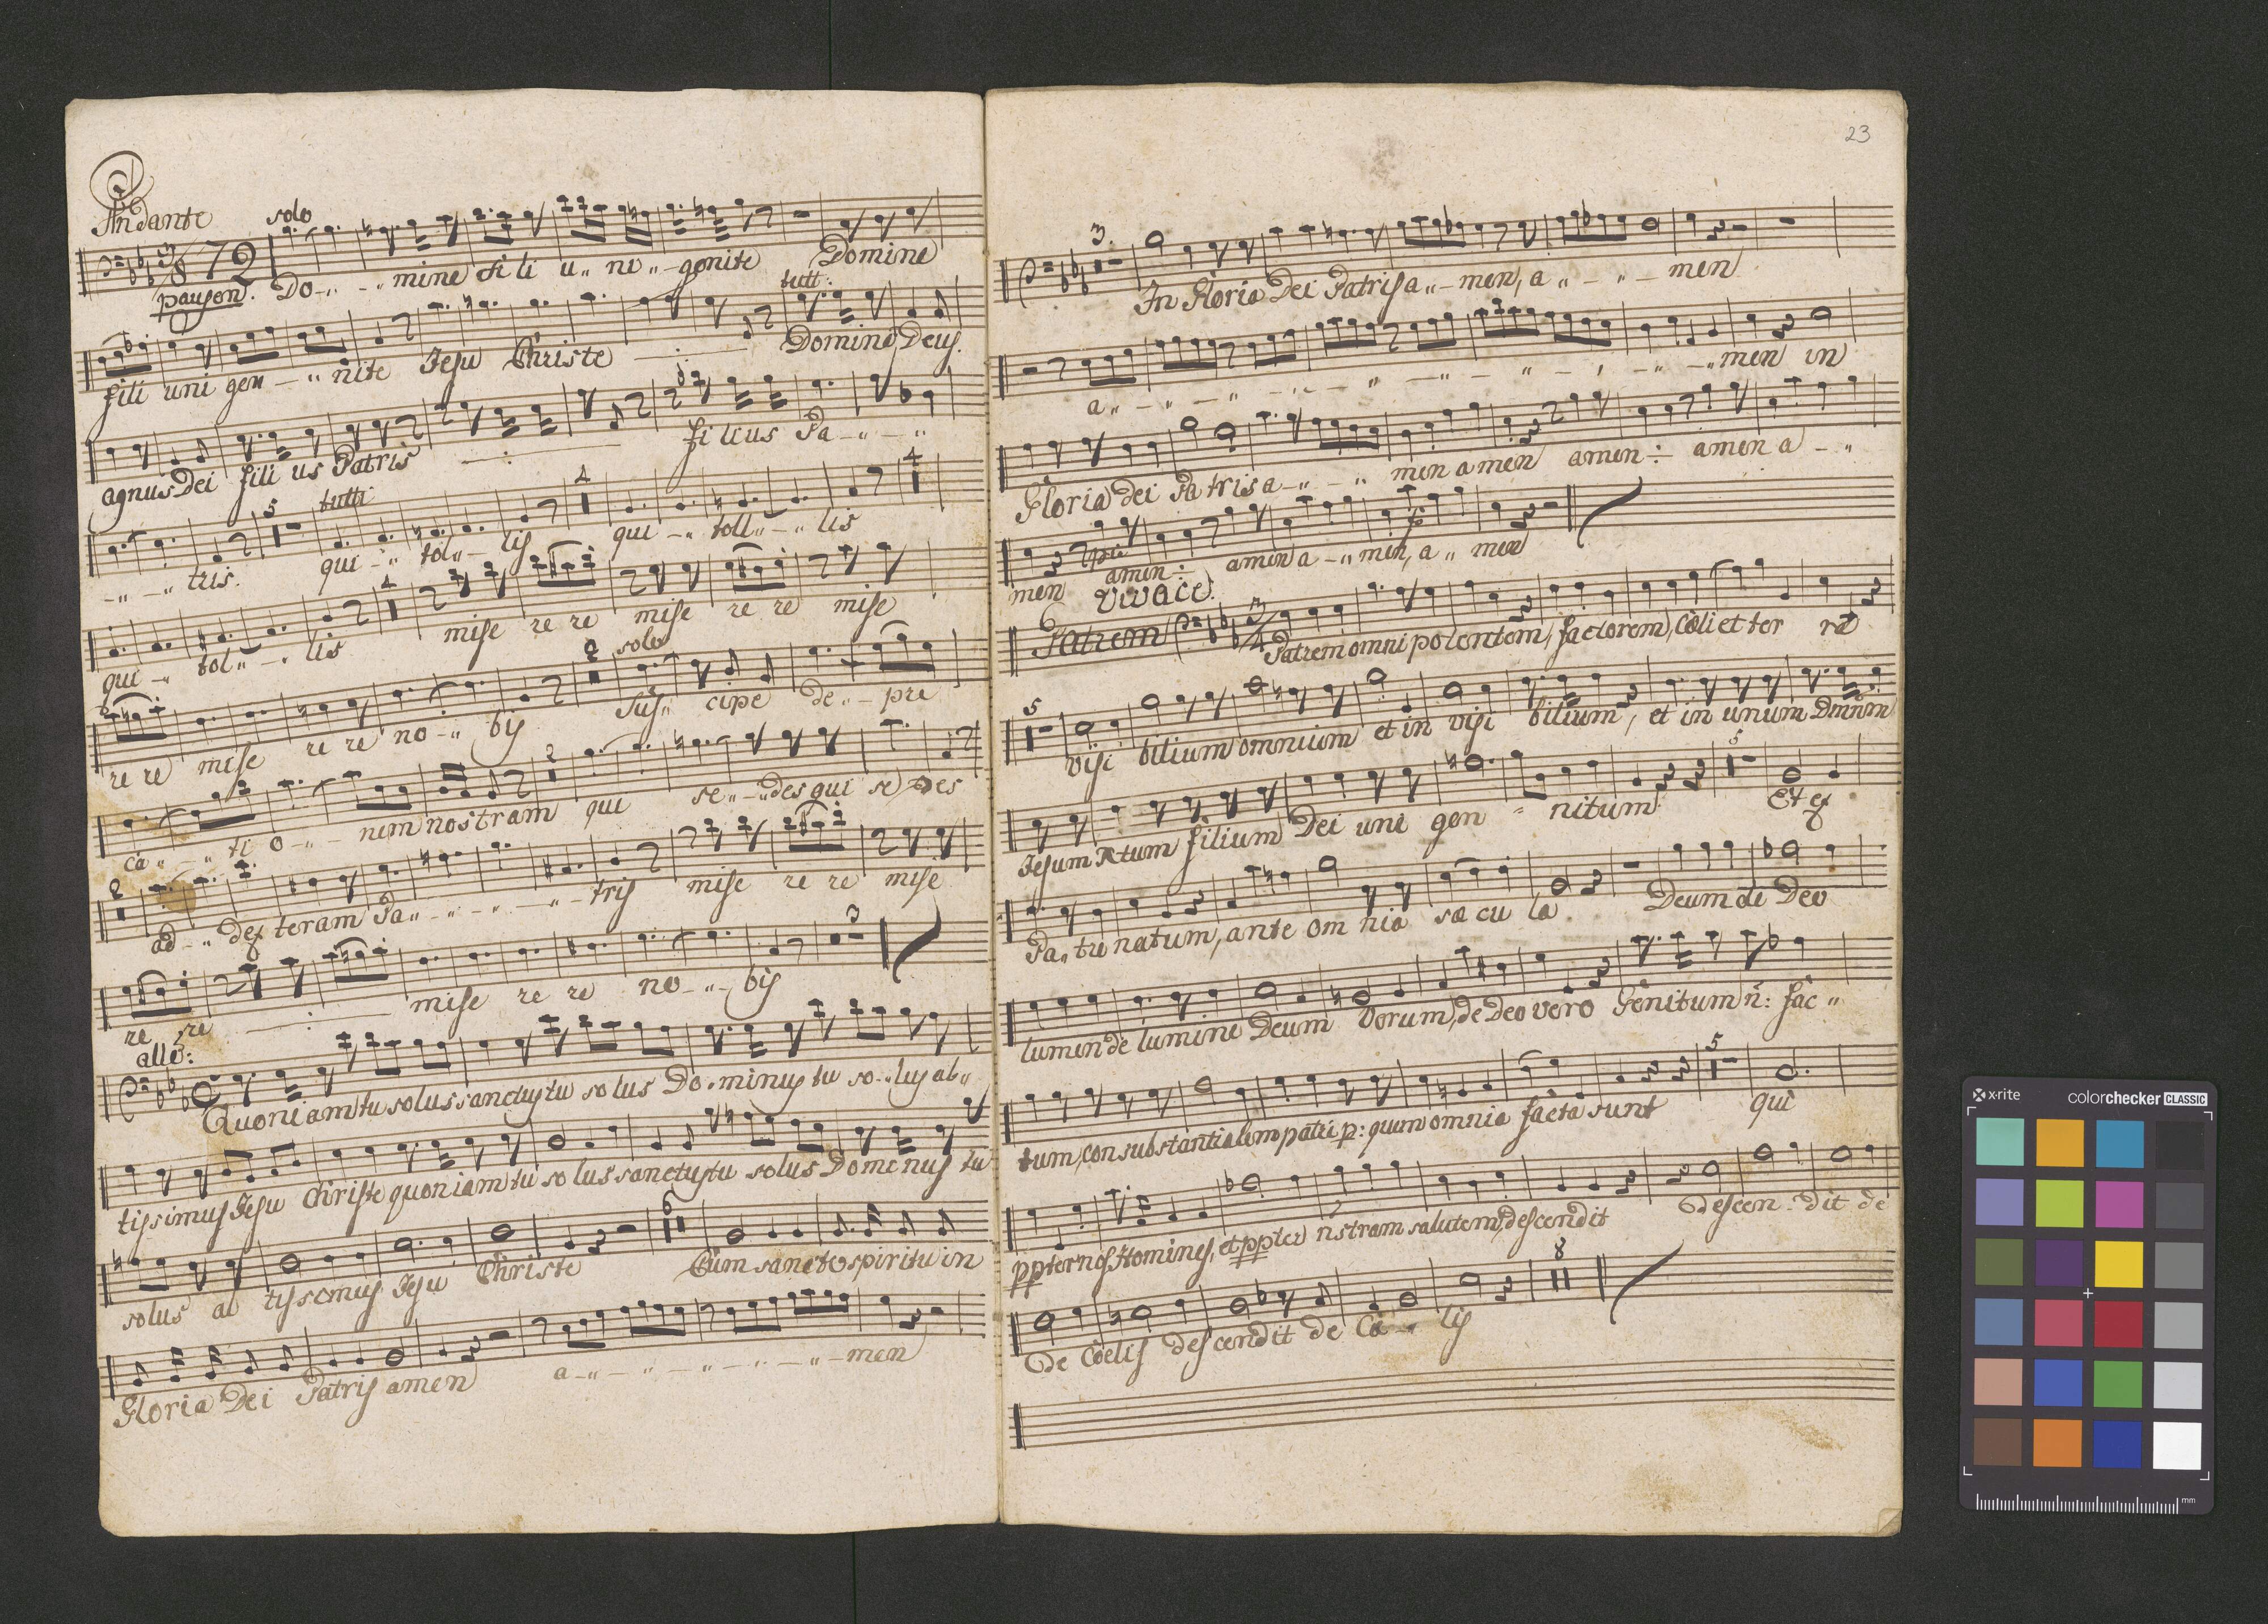 Andante
solo
3/8 72
pausen. Do - " - " mine fi li u " ni " - genite Domine
tutt:
fili uni gen - " nite Jesu Christe - : - Domine Deus.
agnus Dei fili us Patris - : - fi lius Pa - " - "
5 tutti 4 4
- " - " tris. qui - " tol " - lis qui - " toll " - " lis
4
qui - " tol " - " lis mise re re mise re re mise
2 solo
re re mise re re no - " bis Sus " cipe de " - pre
2
ca " - " ti o - " - nem nostram qui se " - " des qui se des
2
ad - " dex teram Pa " - " - " - " - tris mise re re mise
3
re re - : - mise re re no - " - bis
allo:
Quoniam tu solus sanctus tu so lus Do - minus tu so - lus al "
tissimus Jesu Christe quoniam tu so lus sanctus tu solus Dominus tu
6
solus al tissimus Jesu Christe Cum sancto spiritu in
Gloria Dei Patris amen a - " - " - " - " - " - men
23
3.
In Gloria Dei Patris a " - men, a " - " - men
a " - " - " - " - " - " - " - " - " men in
Gloria dei Patris a - " - " men amen amen :- amen a - "
pia
men amen :- amen a - " men, a " men
Vivace.
Patrem 3/4 Patrem omni potentem, factorem, Coeli et ter rae
5
visi bilium omnium et in visi bilium, et in unum Dmnm
5
Jesum Xtum filium Dei uni gen " nitum Et ex
Pa " tre natum, ante om nia sae cu la Deum de Deo
lumen de lumine Deum Verum, de Deo vero Genitum n: fac "
5
tum, con substantialem patri p: quem omnia facta sunt qui
ppter nos Homines, et ppter nstram salutem, descendit Descen - dit de
8
De Coelis descendit de Coe - " lis
x·rite
colorchecker CLASSIC
mm